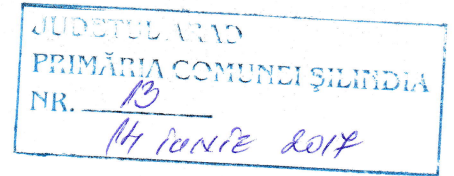 JUDEȚUL ARAD
PRIMĂRIA COMUNEI ŞILINDIA
NR. 13
14 iunie 2017